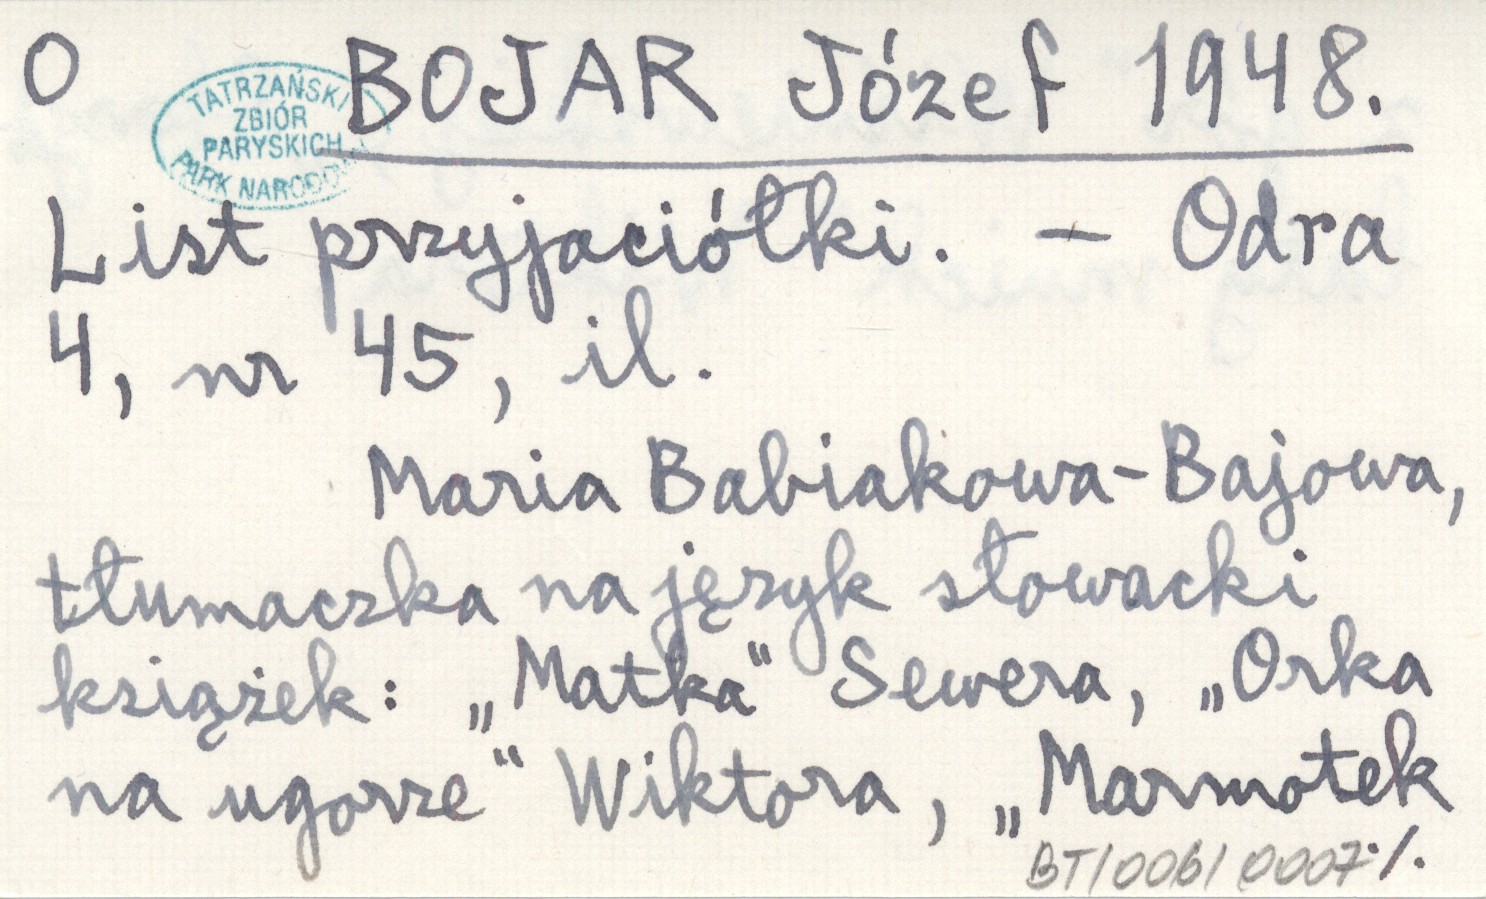 O BOJAR Józef 1948.
TATRZAŃSKI
ZBIÓR
PARYSKICH
PARK NARODOWY
List przyjaciółki. – Odra
4, nr 45, il.
Maria Babiakowa-Bajowa,
tłumaczka na język słowacki
książek: „Matka“ Sewera, „Orka
na ugorze“ Wiktora, „Marmotek
BT/006/0007 ·/.